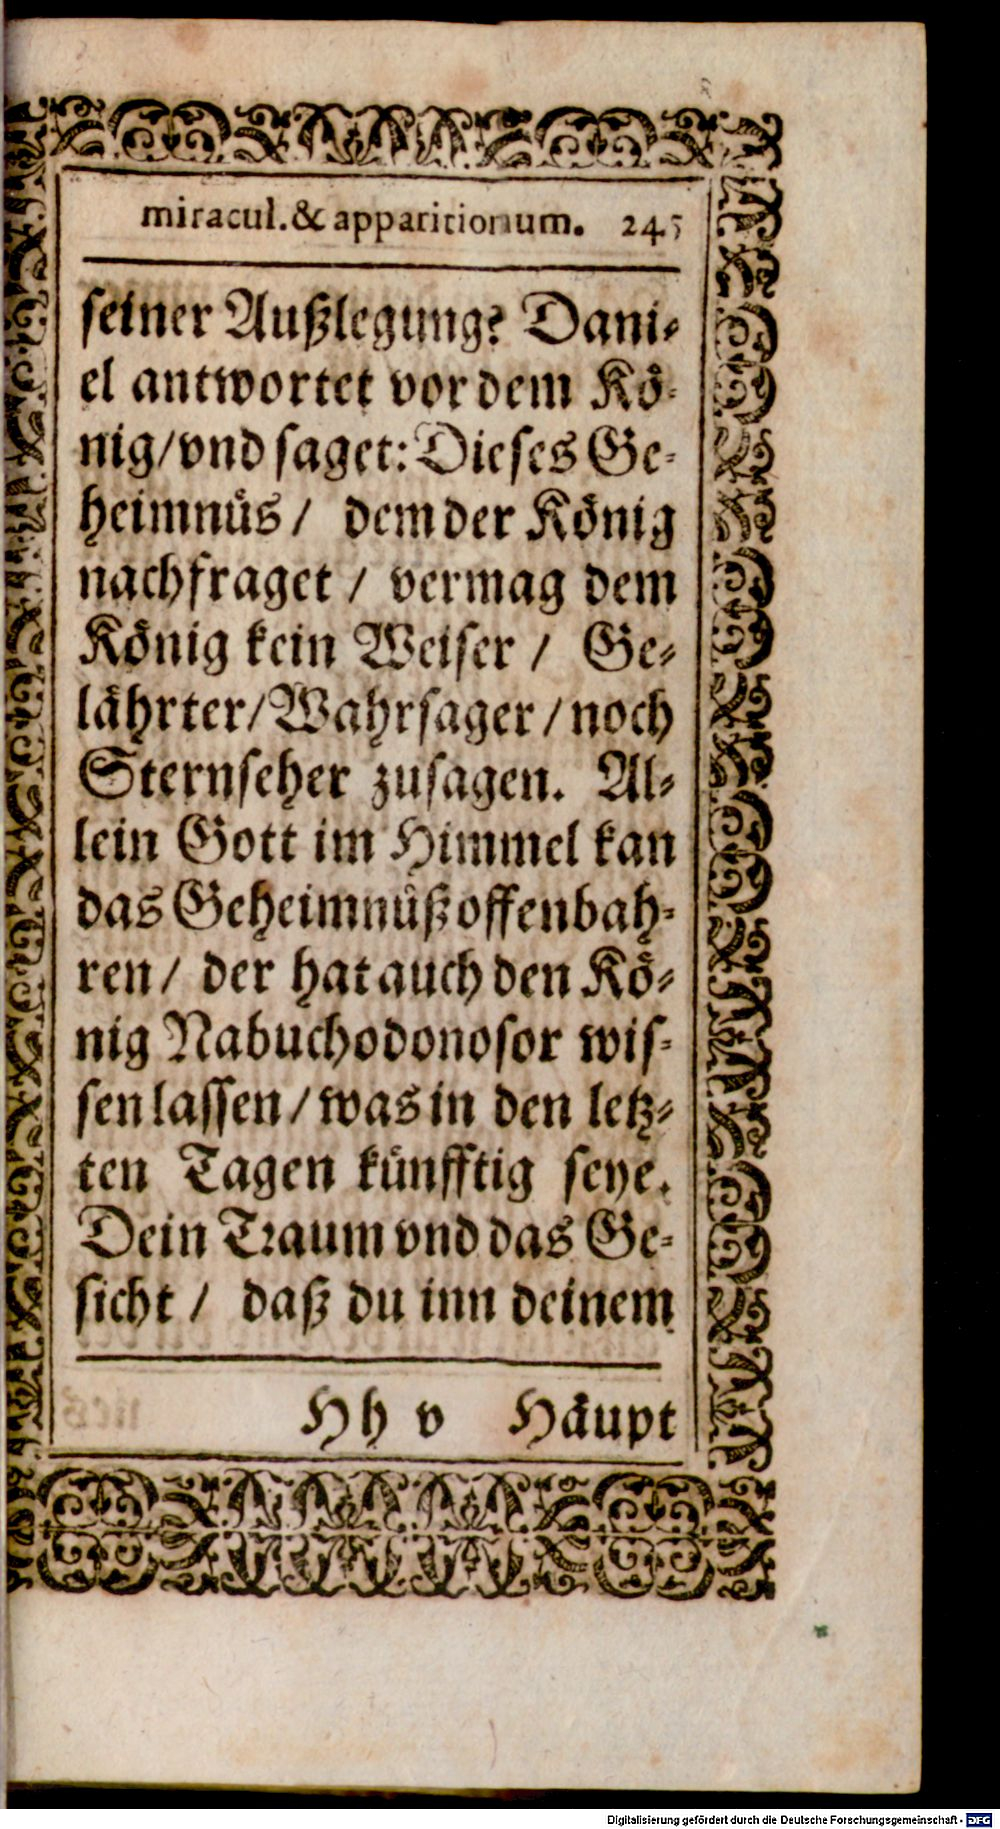 miracul. & apparitionum. 245
seiner Außlegung? Dani-
el antwortet vor dem Kö-
nig/ vnd saget: Dieses Ge-
heimnüs / dem der König
nachfraget / vermag dem
König kein Weiser / Ge-
lährter/ Wahrsager / noch
Sternseher zusagen. Al-
lein Gott im Himmel kan
das Geheimnüß offenbah-
ren / der hat auch den Kö-
nig Nabuchodonosor wis-
sen lassen / was in den letz-
ten Tagen künfftig seye.
Dein Traum vnd das Ge-
sicht / daß du inn deinem
Hh v Häupt
Digitalisierung gefördert durch die Deutsche Forschungsgemeinschaft - DFG